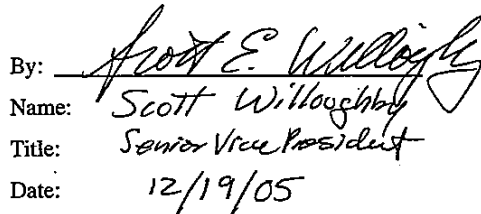 By: Scott E. Willoughby
Name: Scott Willoughby
Title: Senior Vice President
Date: 12/19/05